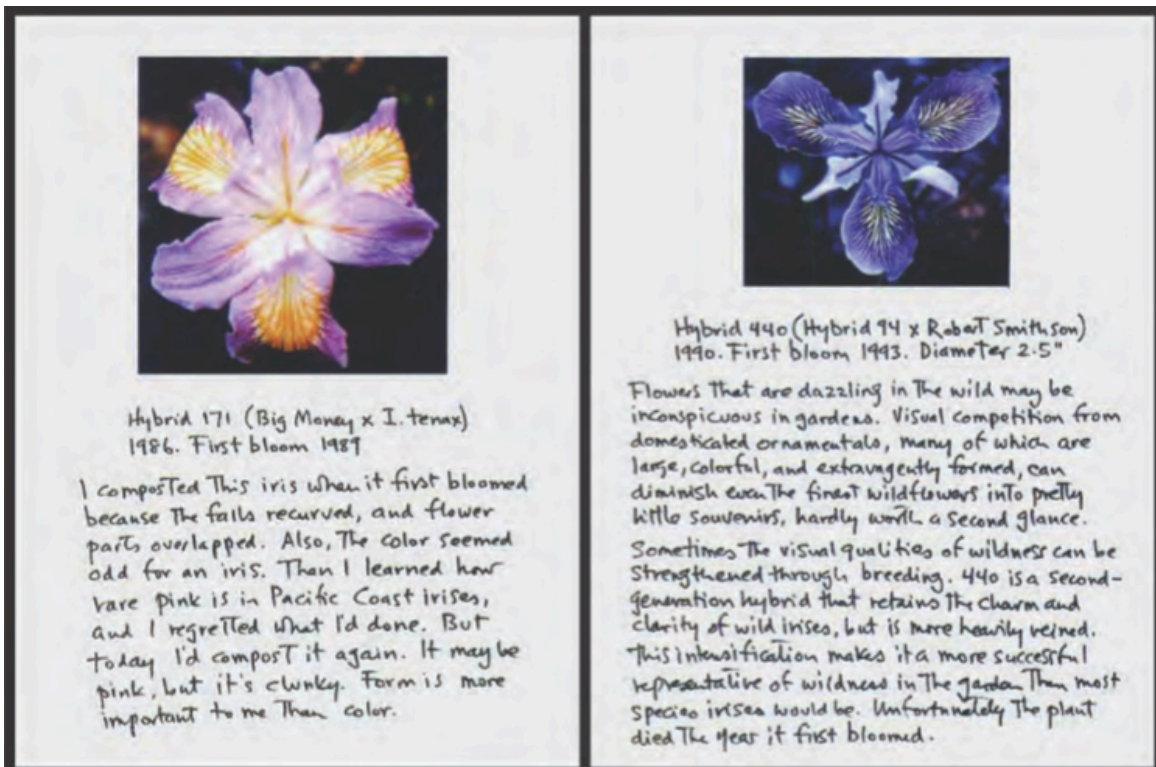 Hybrid 171 (Big Money x I. tenax)
1986. First bloom 1989
I composted This iris when it first bloomed
because The falls recurved, and flower
parts overlapped. Also, The color seemed
odd for an iris. Then I learned how
rare pink is in Pacific Coast irises,
and I regretted what I'd done. But
today I'd compost it again. It may be
pink, but it's clunky. Form is more
important to me Than color.
Hybrid 440 (Hybrid 94 x Robert Smithson)
1990. First bloom 1993. Diameter 2.5"
Flowers That are dazzling in The wild may be
inconspicuous in gardens. Visual competition from
domesticated ornamentals, many of which are
large, colorful, and extravagently formed, can
diminish even The finest wildflowers into pretty
little souvenirs, hardly worth a second glance.
Sometimes The visual qualities of wildness can be
strengthened through breeding. 440 is a second-
generation hybrid that retains The charm and
clarity of wild irises, but is more heavily veined.
This intensification makes it a more successful
representative of wildness in The garden Than most
species irises would be. Unfortunately The plant
died The year it first bloomed.